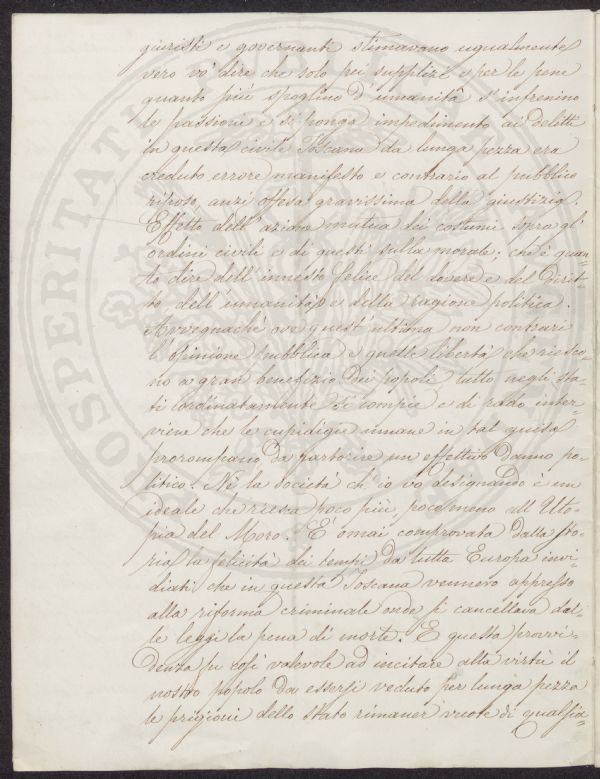 giuristi e governanti stimavono ugualmente
vero vo' dire che solo pei supplizi e per le pene
quanto più spoglino d'umanità s'infrenino
le passioni e si ponga impedimento ai delitti
in questa civile Toscana da lunga pezza era
creduto errore manifesto e contrario al pubblico
riposo, anzi offesa gravissima della giustizia.
Effetto dell'azione mutua dei costumi sopra gl'
ordini civili e di questi sulla morale; che è quan
to dire dell'innesto felice del dovere e del Dirit=
to dell'umanità e della ragione politica.
Avvegnachè ove quest'ultima non contrari
l'opinione pubblica e quelle libertà che riesco=
no a gran benefizio dei popoli tutto negli sta=
ti ordinatamente si compie e di rado inter=
viene che le cupidigie umane in tal guisa
prorompano da partorire un effettivo danno po=
litico. Nè la società ch'io vo designando è un
ideale che riesca poco più, poco meno all'Uto=
pia del Moro. È omai comprovata dalla sto=
ria la felicità dei tempi da tutta Europa invi=
diati che in questa Toscana vennero appresso
alla riforma criminale onde si cancellava dal=
le leggi la pena di morte. E questa provvi=
denza fu così valevole ad incitare alla virtù il
nostro popolo da essersi veduto per lunga pezza
le prigioni dello stato rimaner vuote di qualsia=
PROSPERITATI